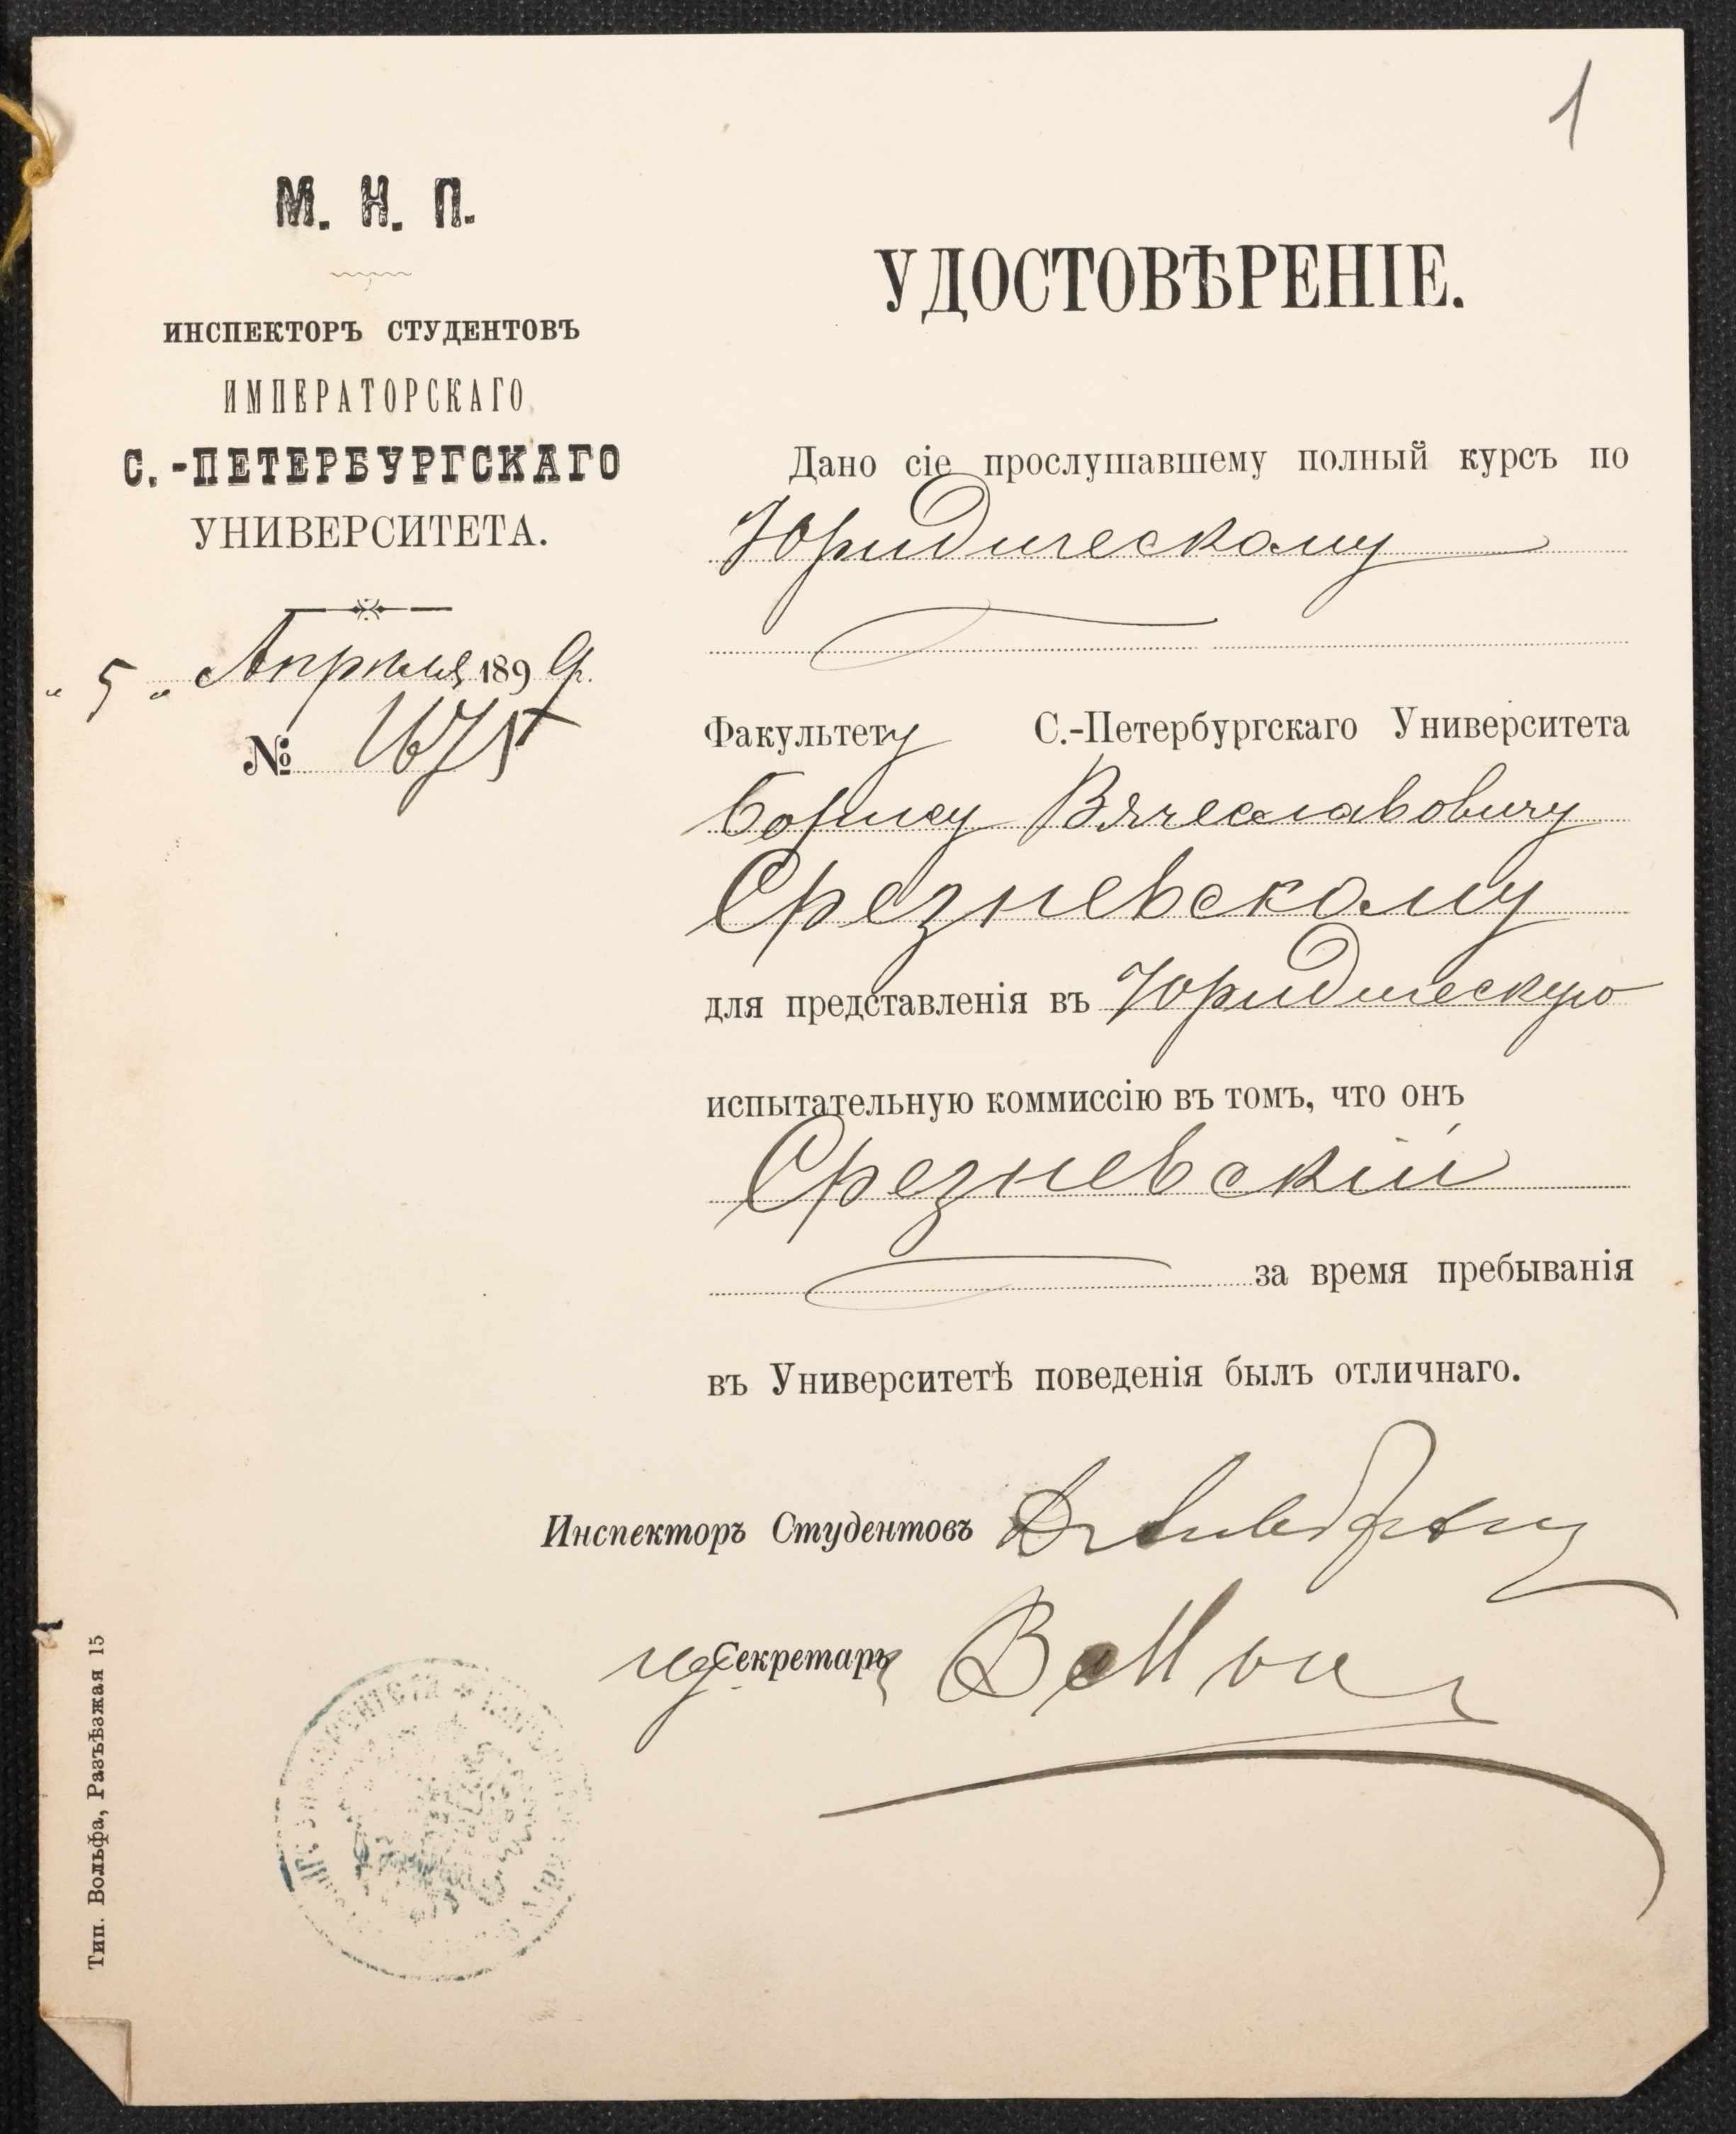 1
М. Н. П.
ИНСПЕКТОРЪ СТУДЕНТОВЪ
ИМПЕРАТОРСКАГО
С.-ПЕТЕРБУРГСКАГО
УНИВЕРСИТЕТА.
„ 5 „ Апрѣля 1899 г.
№ 1675
УДОСТОВѢРЕНІЕ.
Дано сіе прослушавшему полный курсъ по
Юридическому
Факультету С.-Петербургскаго Университета
Борису Вячеславовичу
Срезневскому
для представленія въ Юридическую
испытательную коммиссію въ томъ, что онъ
Срезневскій
за время пребыванія
въ Университетѣ поведенія былъ отличнаго.
Инспекторъ Студентовъ
Секретаря
Тип. Вольфа, Разъѣзжая 15